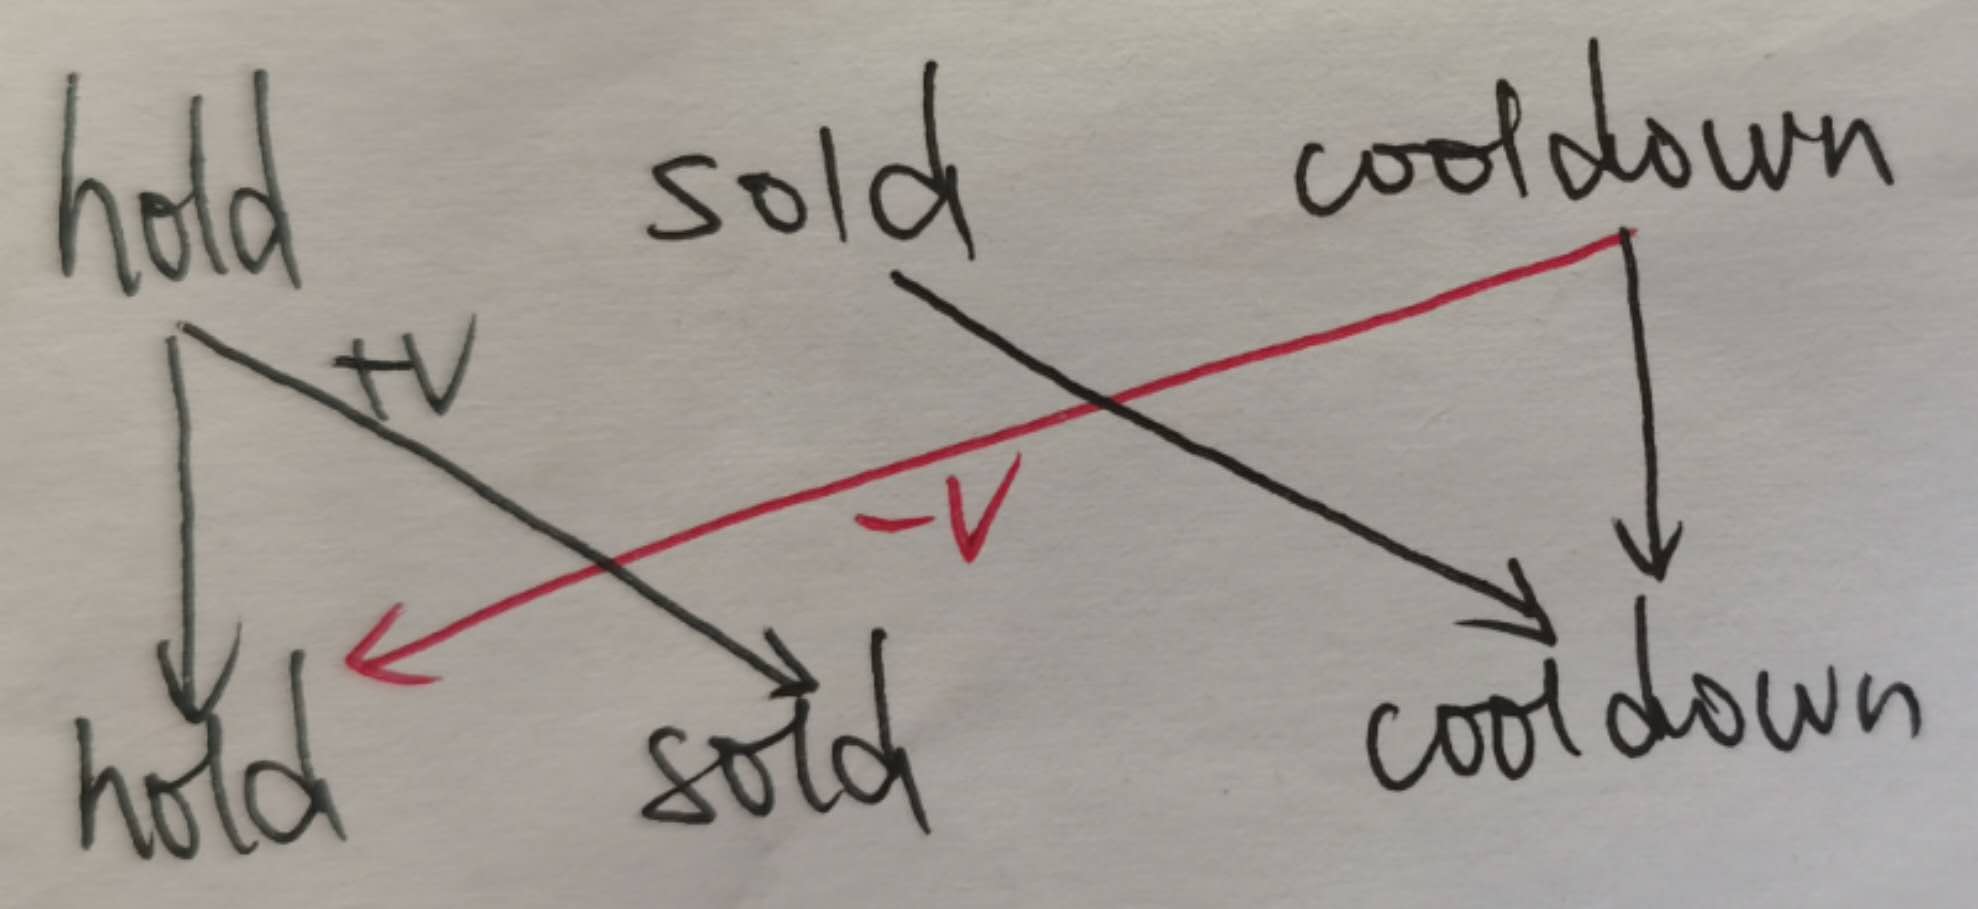 hold sold cooldown
+V
-V
hold sold cooldown